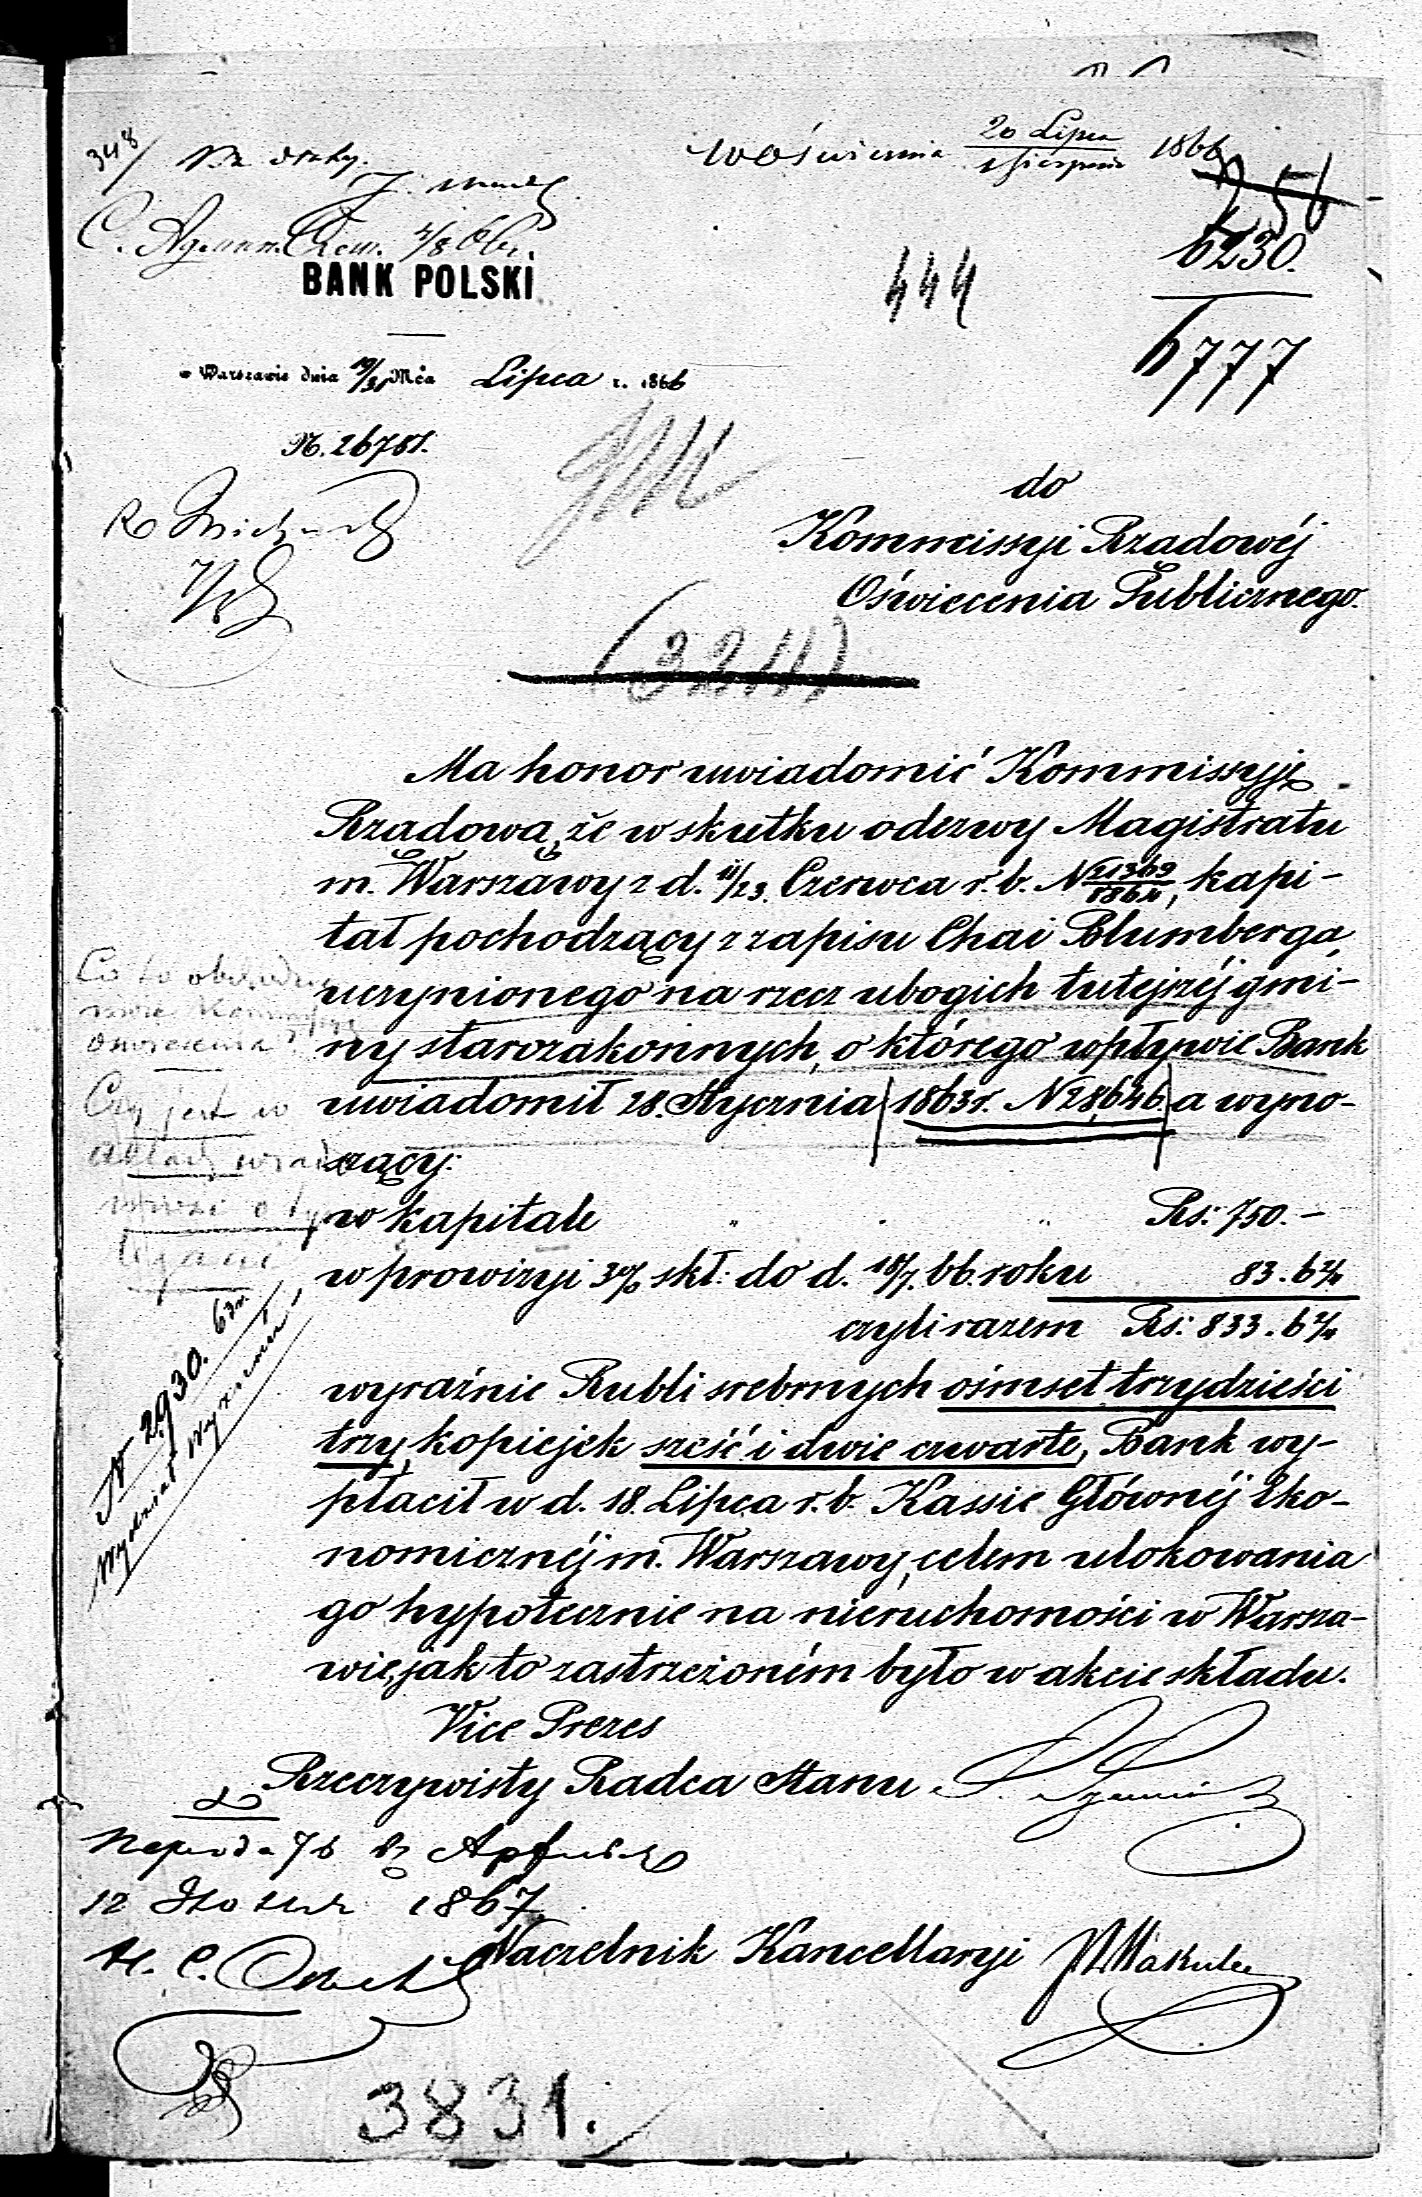 348/
20 Lipca
1 Sierpnia 1866
6230.
444
6777
BANK POLSKI
w Warszawie dnia 19/31 Mca Lipca r. 1866
N. 26781.
do
Kommissyi Rządowéj
Oświecenia Publicznego.
(3211)
Ma honor uwiadomić Kommissyję
Rządową, że w skutku odezwy Magistratu
m. Warszawy z d. 11/23. Czerwca r. b. N 21369/1864, kapi-
tał pochodzący z zapisu Chai Blumberga
uczynionego na rzecz ubogich tutejszéj gmi-
ny starozakonnych, o którego wpływie Bank
uwiadomił 28. Stycznia 1863 r. N 28,646. a wyno-
szący:
w kapitale " . " Rs: 750. –
w prowizyi 3% skł: do d. 18/7. 66. roku 83. 6 2/4
czyli razem Rs: 833. 6 2/4
wyraźnie Rubli srebrnych ośmset trzydzieści
trzy, kopiejek sześć i dwie czwarte, Bank wy-
płacił w d. 18. Lipca r. b. Kassie Głównéj Eko-
nomicznéj m. Warszawy, celem ulokowania
go hypotecznie na nieruchomości w Warsza-
wie, jak to zastrzeżoném było w akcie składu.
Czy jest w
N 2930.
Vice Prezes
Rzeczywisty Radca Stanu
1867
Naczelnik Kancellaryi
3831.